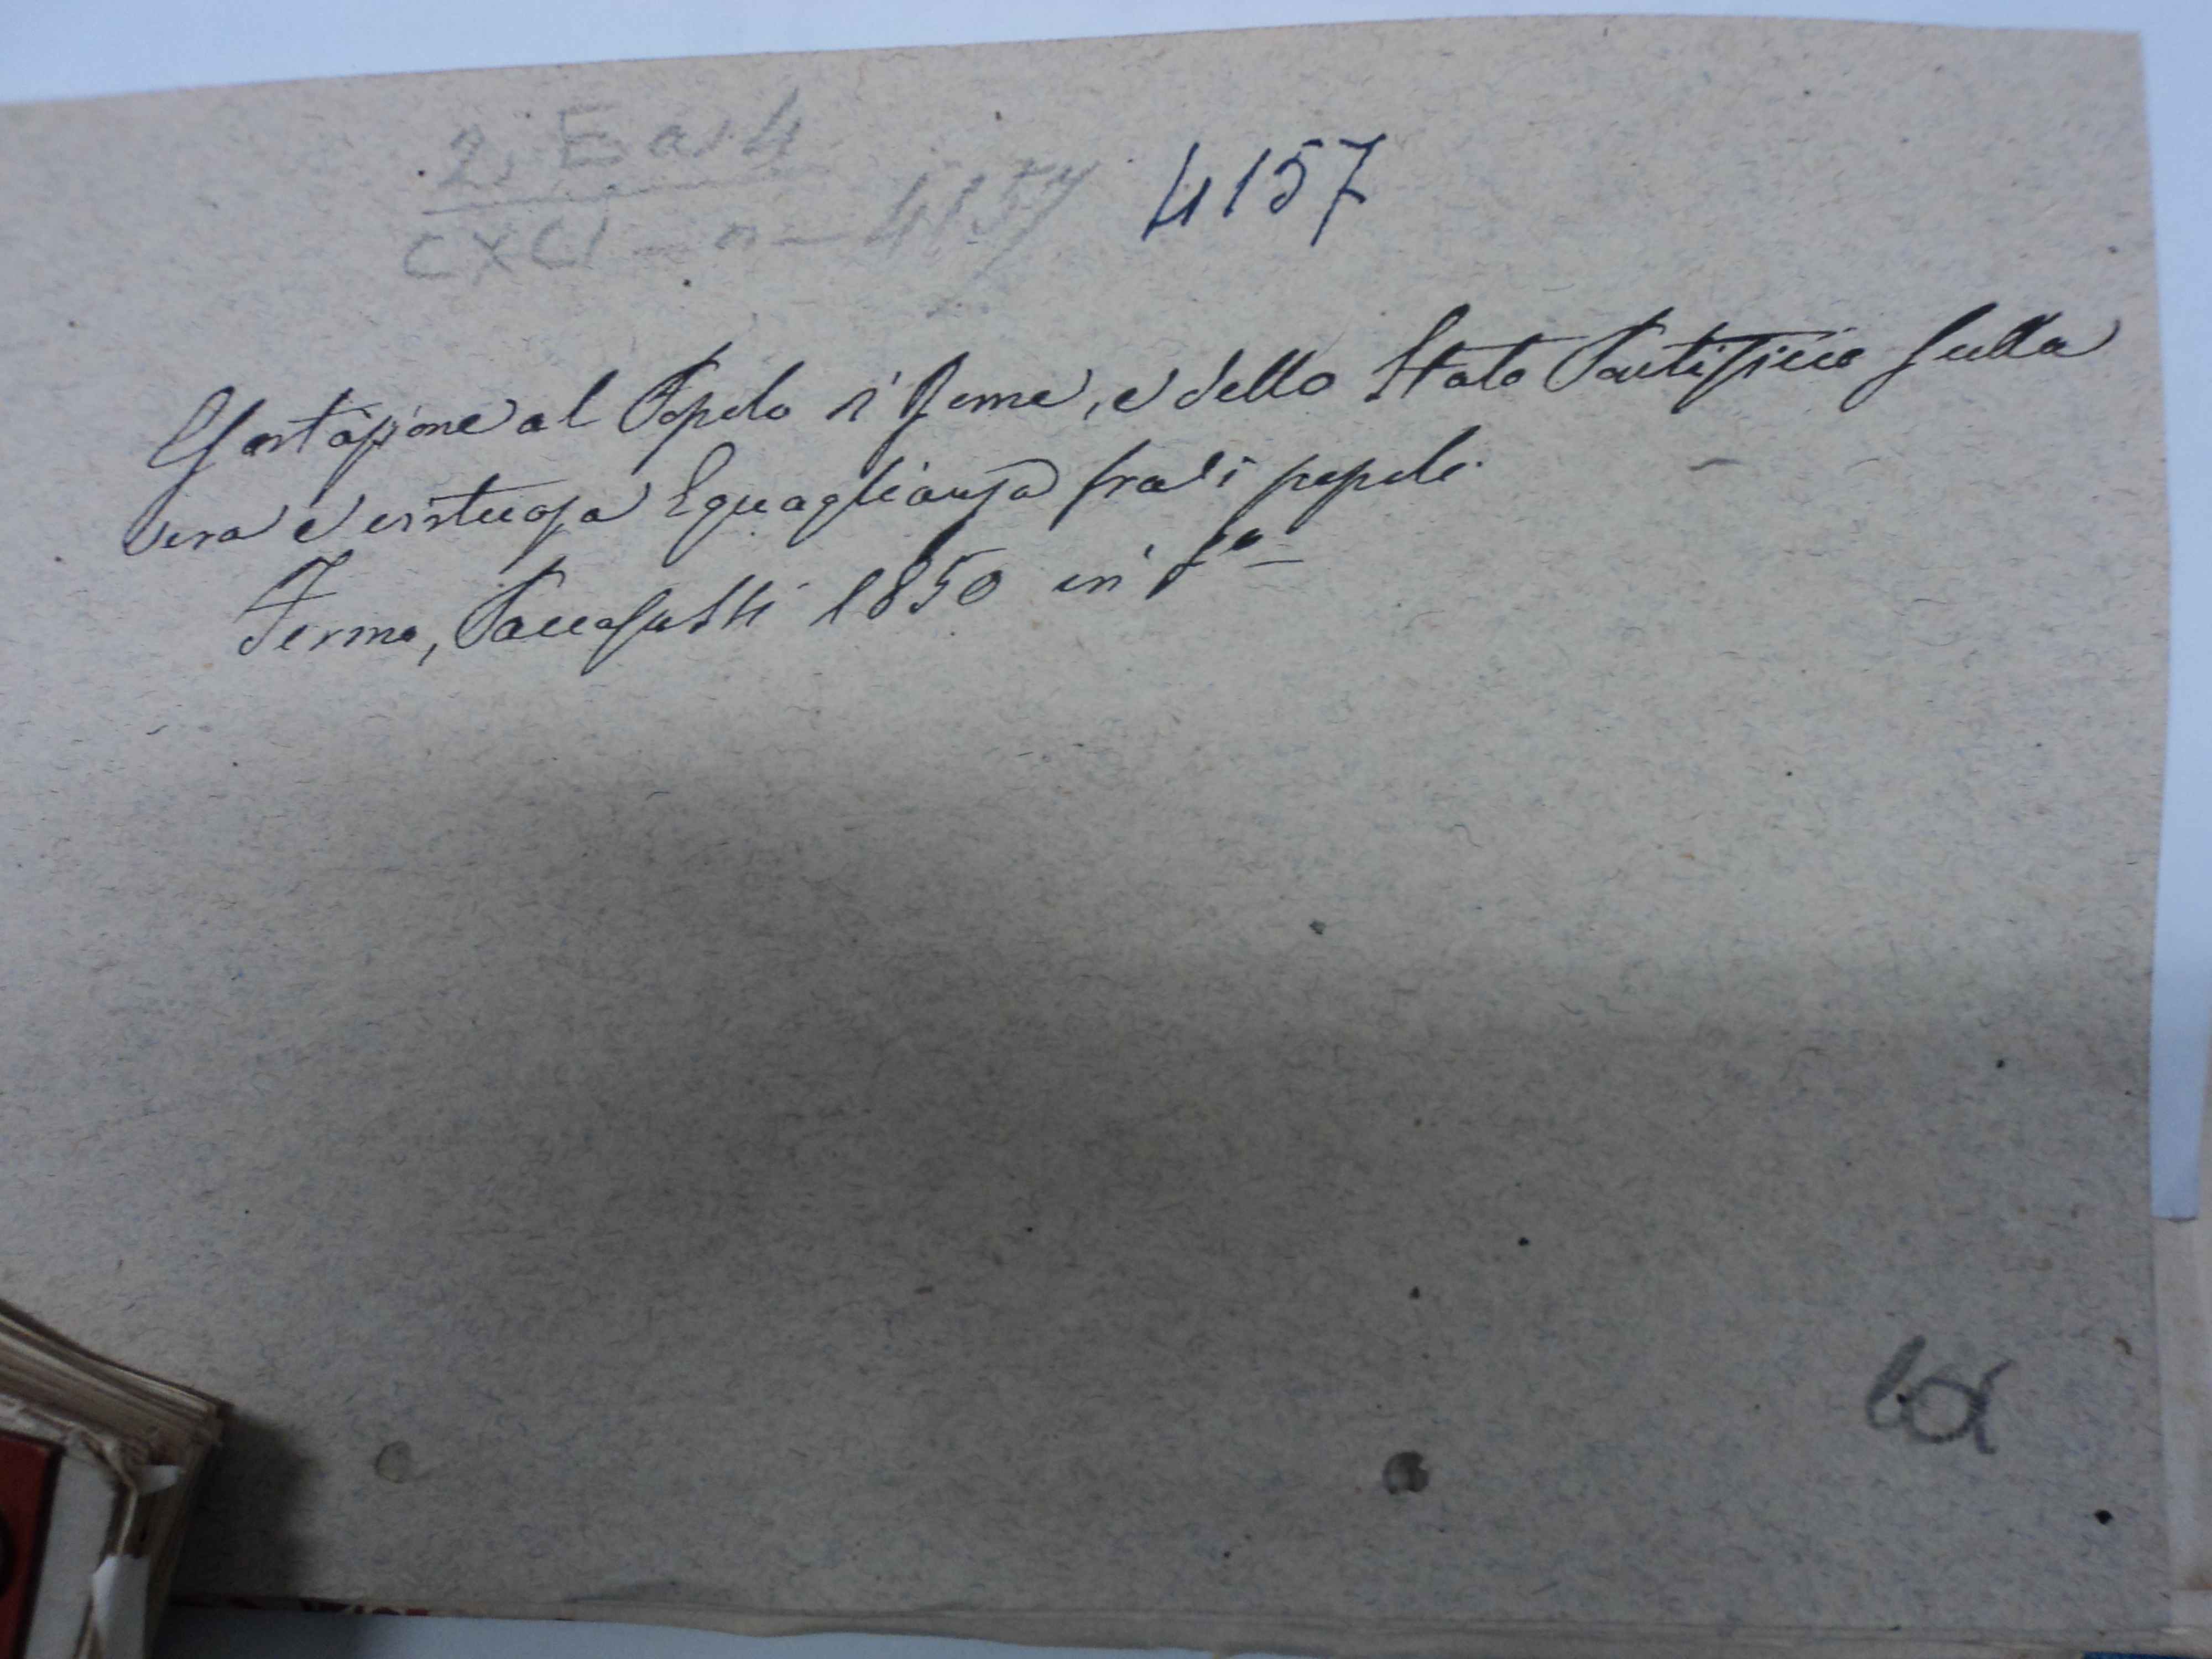 2, E a, 4
CXCI - n - 4157 4157
Esortazione al Popolo di Roma, e dello Stato Pontificio sulla
vera e virtuosa Eguaglianza fra di i popoli.
Fermo, Paccasassi 1850 in f°